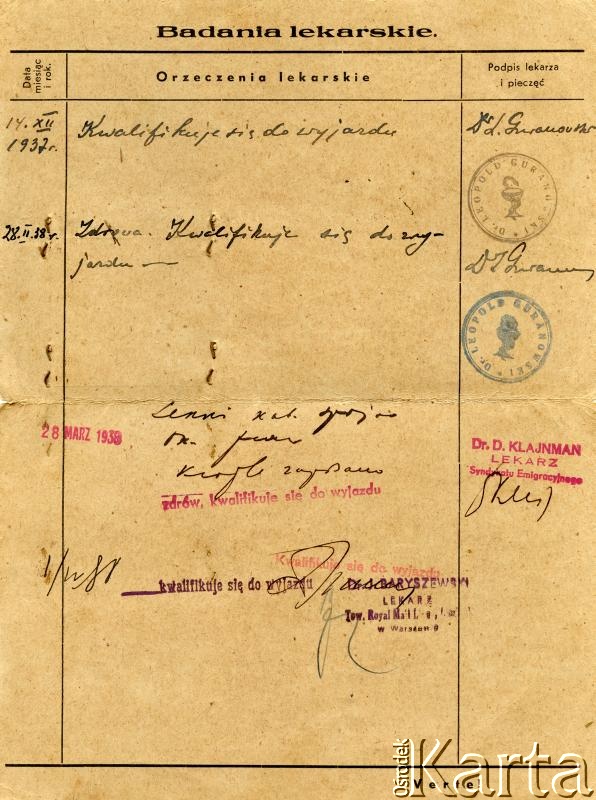 Badania lekarskie.
Data miesiąc i rok.
Orzeczenia lekarskie
Podpis lekarza i pieczęć
14. XII 1937 r.
Kwalifikuje się do wyjazdu
Dr L. Guranowski
Dr. LEOPOLD GURANOWSKI
28. II. 38 r.
Zdrowa. Kwalifikuje się do wy-
jazdu —
Dr L Guranow
Dr. LEOPOLD GURANOWSKI
28 MARZ 1938
Lekki kat. spoj
Dr. D. KLAJNMAN
LEKARZ
Syndykatu Emigracyjnego
Krople zapisano
zdrów, kwalifikuje się do wyjazdu
Kwalifikuje się do wyjazdu
kwalifikuje się do wyjazdu
BARYSZEWSKI
LEKARZ
Tow. Royal Mail
w Warszawie
Verte!
Ośrodek
Karta